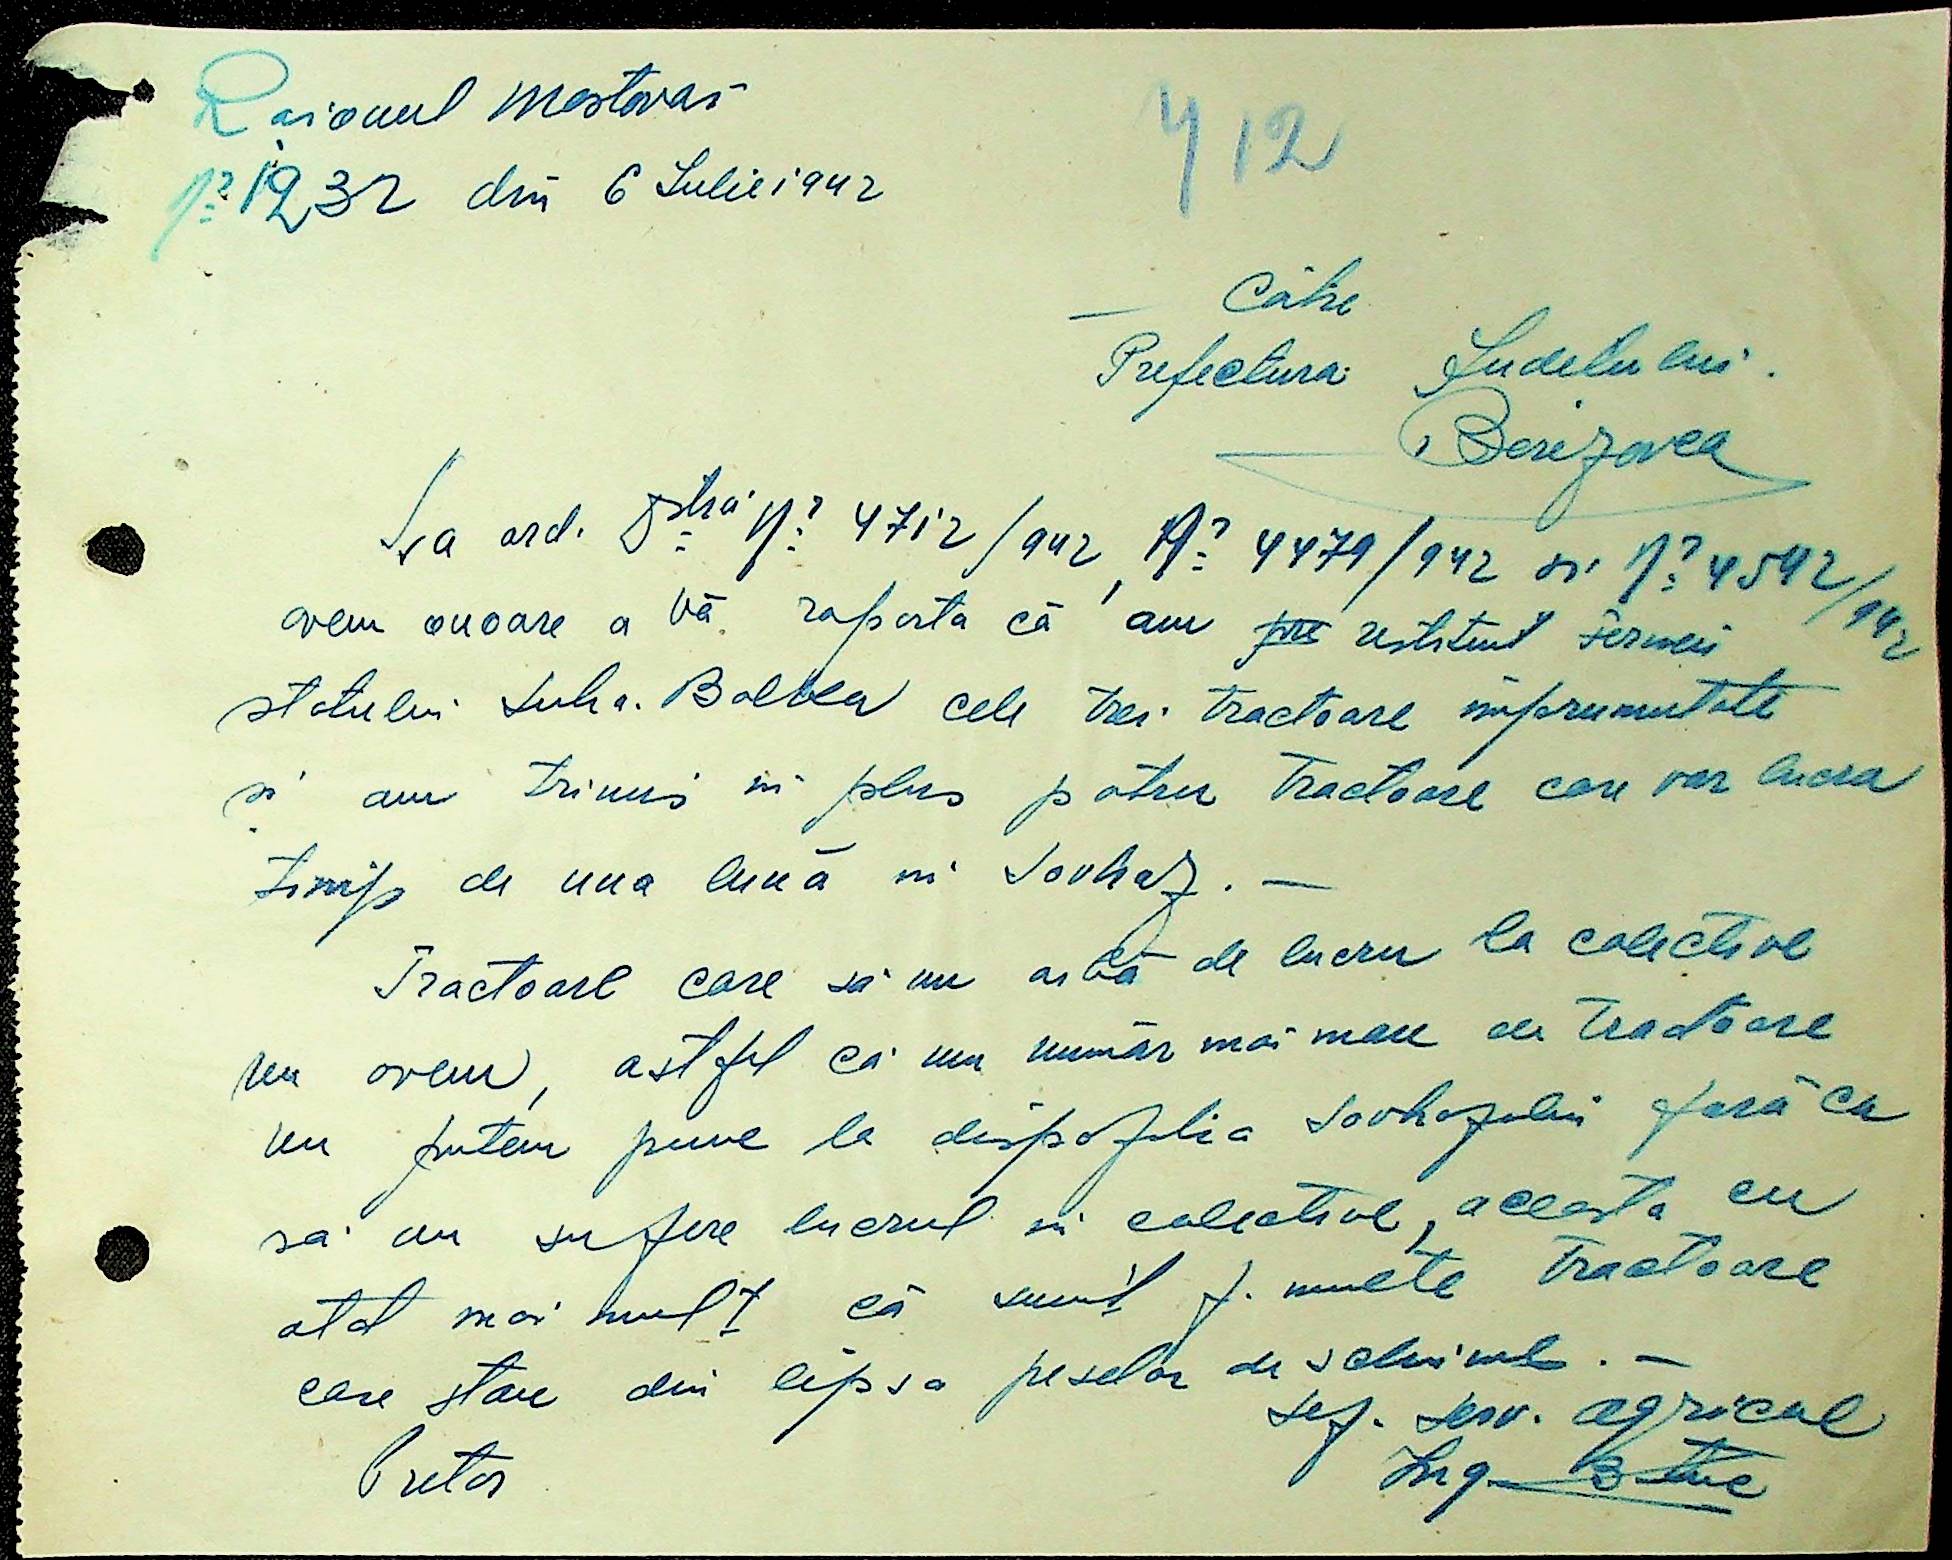 Raionul Mostovai
412
Nº 1232 din 6 Iulie 1942
Către
Prefectura Judetului.
Berezovca
La ord. Dstră Nº 4712/942, Nº 4479/942 si Nº 4542/942
avem onoare a Vă raporta că am restituit fermei
statului Suha-Balca cele trei tractoare imprumutate
și am trimis in plus patru tractoare care vor lucra
timp de una lună in Sovhoz. —
Tractoare care să nu aibă de lucru la colective
nu avem, astfel că un număr mai mare de tractoare
nu putem pune la dispoziția Sovhozului fară ca
să nu sufere lucrul in colective, aceasta cu
atat mai mult că sunt f. multe tractoare
care stau din lipsa peselor de schimb. —
Sef. serv. agricol
Pretor
Ing.